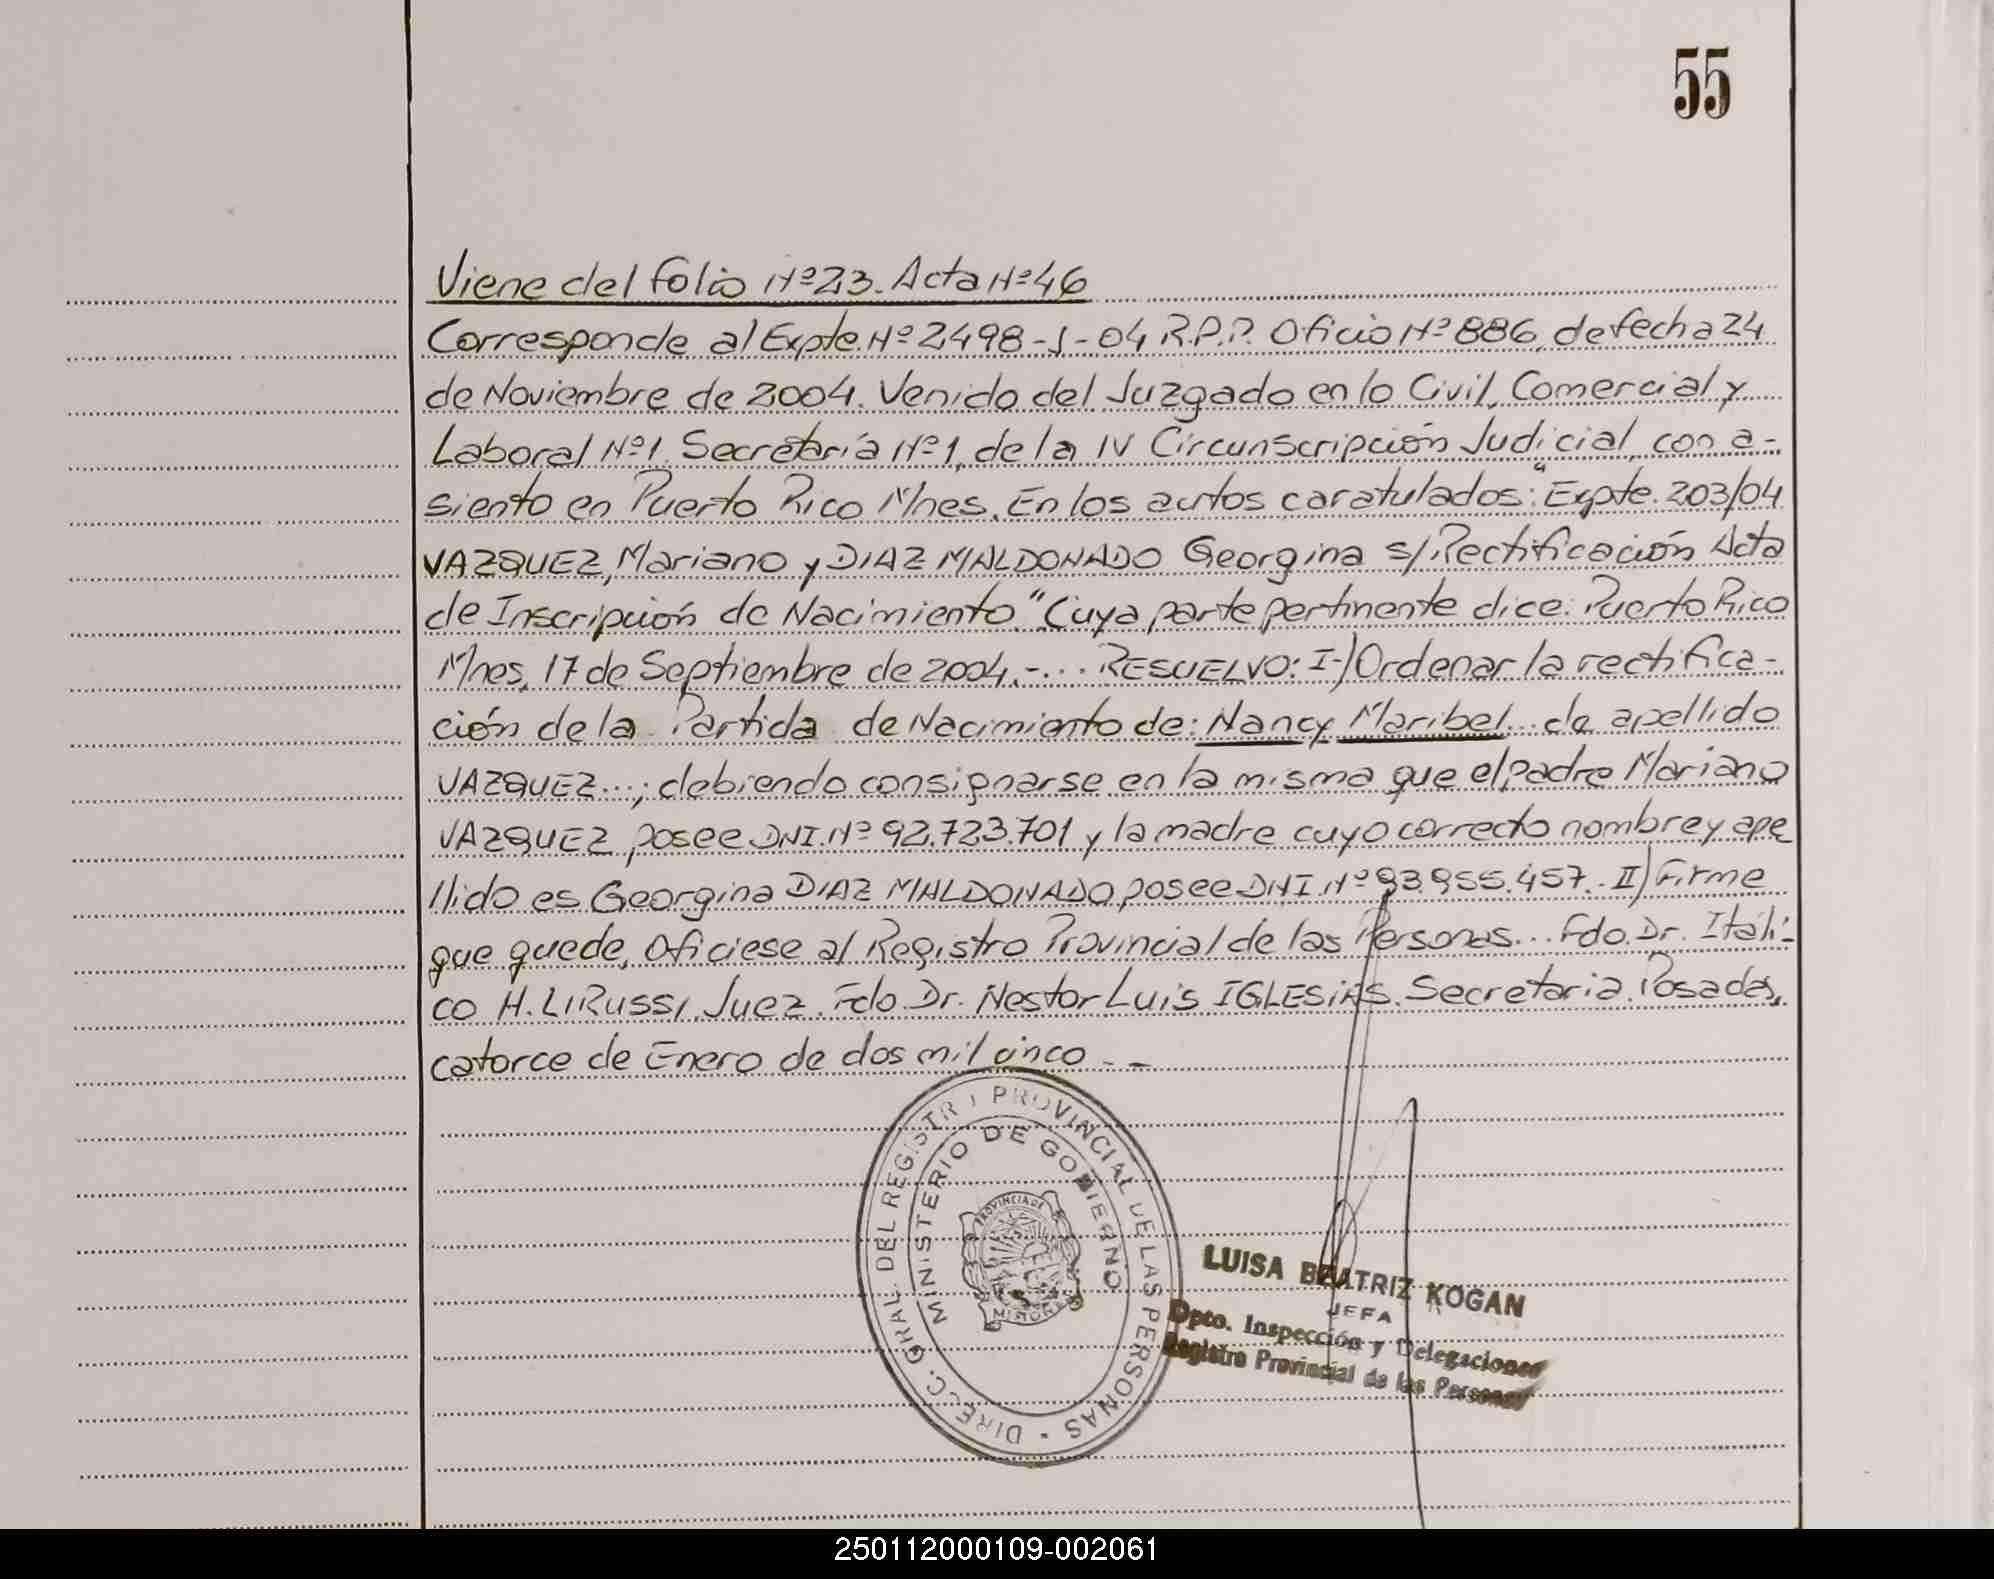 55
Viene del folio Nº 23. Acta Nº 46
Corresponde al Expte. Nº 2498-J-04 R.P.P. Oficio Nº 886, de fecha 24
de Noviembre de 2004. Venido del Juzgado en lo Civil, Comercial y
Laboral Nº 1, Secretaría Nº 1, de la IV Circunscripción Judicial, con a-
siento en Puerto Rico Mnes. En los autos caratulados: "Expte. 203/04
VAZQUEZ, Mariano y DIAZ MALDONADO Georgina s/. Rectificación Acta
de Inscripción de Nacimiento." Cuya parte pertinente dice: Puerto Rico
Mnes, 17 de Septiembre de 2004.-... RESUELVO: I-) Ordenar la rectifica-
ción de la Partida de Nacimiento de: Nancy Maribel... de apellido
VAZQUEZ...; debiendo consignarse en la misma que el padre Mariano
VAZQUEZ posee DNI. Nº 92.723.701 y la madre cuyo correcto nombre y ape
llido es Georgina DIAZ MALDONADO, posee DNI. Nº 93.955.457.. II) Firme
que quede, Oficiese al Registro Provincial de las Personas... Fdo. Dr. Itáli-
co H. LIRUSSI, Juez. Fdo. Dr. Nestor Luis IGLESIAS. Secretaria. Posadas,
catorce de Enero de dos mil cinco.--
DIRECC. GRAL. DEL REGISTRO PROVINCIAL DE LAS PERSONAS
MINISTERIO DE GOBIERNO
PROVINCIA DE
MISIONES
LUISA BEATRIZ KOGAN
JEFA
Dpto. Inspección y Delegaciones
Registro Provincial de las Personas
250112000109-002061